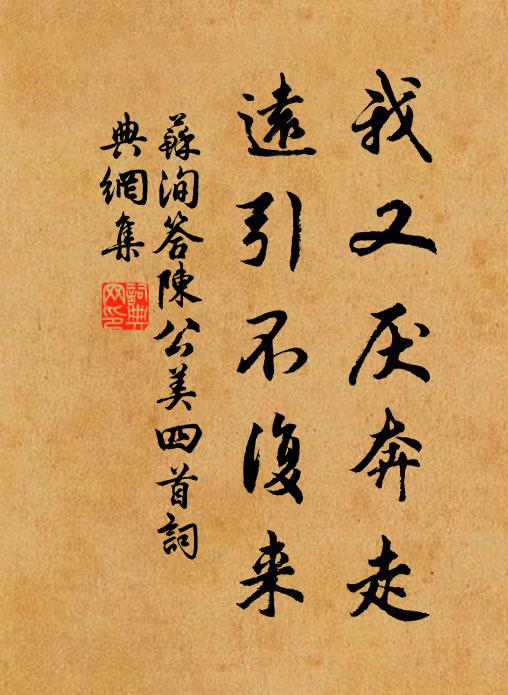 我又厌奔走
遠引不復来
蘇洵答陳公美四首詞
典網集
詞典网印